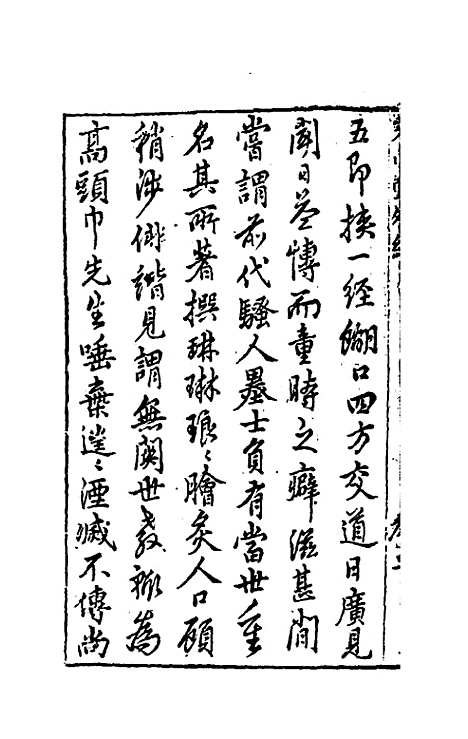 五即挾一経餬口四方交道日廣見
聞日益慱而童時之癖滋甚間
嘗謂前代騷人墨士負有當世重
名其所著撰琳琳琅〻膾炙人口顧
稍涉俳諧見謂無関世教輒為
高頭巾先生唾棄遂〻湮滅不傳尚